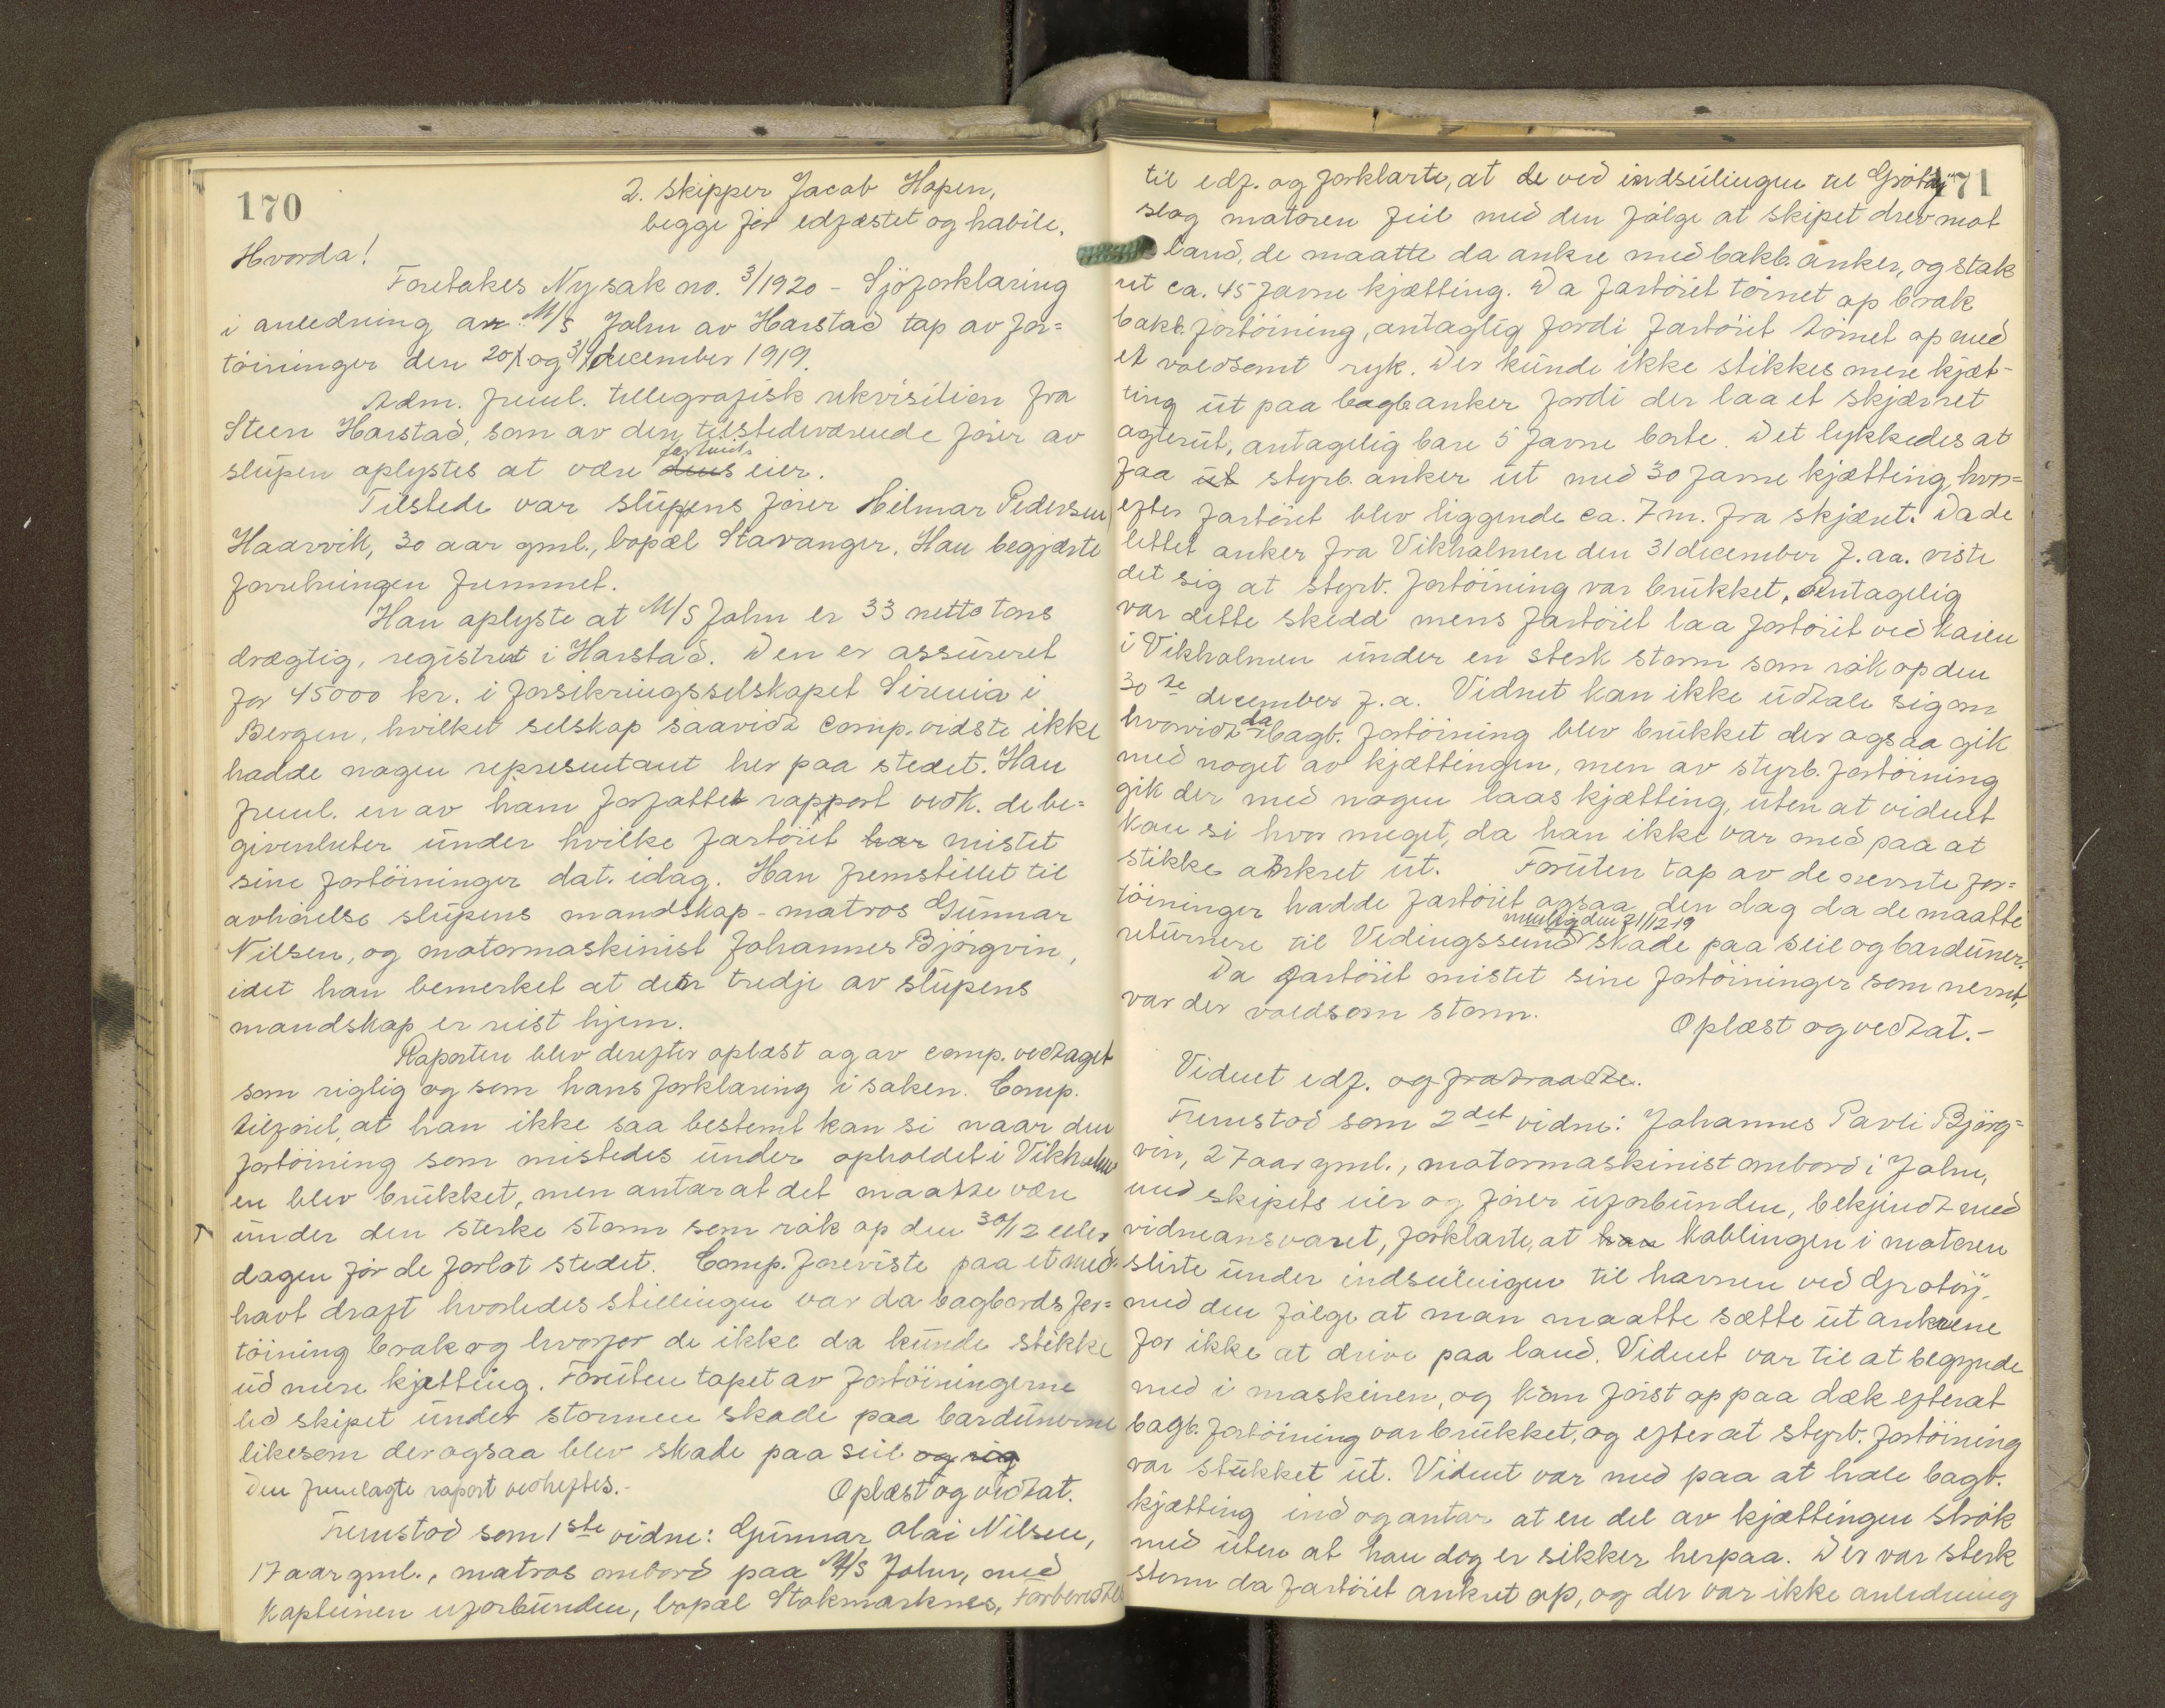 170
2. skipper Jacob Hopen,
begge før edfæstet og habile.
Hvorda!
Foretakes Nysak no. 3/1920 - Sjöforklaring
i anledning av M/S John av Harstad tap av for=
töininger den 20/ og 31/ december 1919.
Adm. freml. tellegrafisk rekvisition fra
Steen Harstad, som av den tilstedeværende förer av
slupen oplystes at være fartöiets dens eier.
Tilstede var slupens förer Hilmar Pedersen
Haarvik, 30 aar gml., bopæl Stavanger. Han begjærte
forretningen fremmet.
Han oplyste at M/S John er 33 netto tons
drægtig, registret i Harstad. Den er assureret
for 45000 kr. i forsikringsselskapet Sirenia i
Bergen, hvilket selskap saavidt comp. vidste ikke
hadde nogen representant her paa stedet. Han
freml. en av ham forfattet rapport vedk. de be=
givenheter under hvilke fartöiet har mistet
sine fortöininger dat. idag. Han fremstillet til
avhörelse slupens mandskap - matros Gunnar
Nilsen, og motormaskinist Johannes Björgvin,
idet han bemerket at den tredje av slupens
mandskap er reist hjem.
Raporten blev derefter oplæst og av comp. vedtaget
som rigtig og som hans forklaring i saken. Comp.
tilföiet, at han ikke saa bestemt kan si naar den
fortöining som mistedes under opholdet i Vikholm
en blev brukket, men antar at det maatte være
under den sterke storm som rök op den 30/12 eller
dagen för de forlot stedet. Comp. foreviste paa et med=
havt draft hvorledes stillingen var da bagbords for=
töining brak og hvorfor de ikke da kunde stikke
ud mere kjetting. Foruten tapet av fortöiningerne
led skipet under stormen skade paa bardunerne
likesom der ogsaa blev skade paa seil og rig
Den fremlagte raport vedheftes.- Oplæst og vedtat.
Fremstod som 1ste vidne: Gunnar Olai Nilsen,
17 aar gml., matros ombord paa M/S John, med
kapteinen uforbunden, bopæl Stokmarknes, Forberedtes
171
til edf. og forklarte, at de ved indseilingen til Grötöy
slog motoren feil med den fölge at skipet drev mot
land, de maatte da ankre med bakb. anker, og stak
ut ca. 45 favne kjætting. Da fartöiet törnet op brak
bakb. fortöining, antaglig fordi fartöiet törnet op med
et voldsomt ryk. Der kunde ikke stikkes mere kjæt-
ting ut paa bagb anker fordi der laa et skjær ret
agterut, antagelig bare 5 favne borte. Det lykkedes at
faa ut styrb. anker ut med 30 favne kjætting, hvor=
efter fartöiet blev liggende ca. 7 m. fra skjæret. Da de
lettet anker fra Vikholmen den 31 december f.aa. viste
det sig at styrb. fortöining var brukket, Antagelig
var dette skedd mens fartöiet laa fortöiet ved kaien
i Vikholmen under en sterk storm som rök op den
30te december f.a. Vidnet kan ikke udtale sig om
hvorvidt da bagb. fortöining blev brukket der ogsaa gik
med noget av kjættingen, men av styrb. fortöining
gik der med nogen laas kjætting, uten at vidnet
kan si hvor meget, da han ikke var med paa at
stikke ankret ut. Foruten tap av de nevnte for=
töininger hadde fartöiet ogsaa den dag da de maatte
returnere til Vedingssund muligens den 21/12 19 skade paa seil og barduner.
Da fartöiet mistet sine fortöininger som nevnt,
var der voldsom storm.
Oplæst og vedtat.-
Vidnet edf. og fratraadte.
Fremstod som 2det vidne: Johannes Pavli Björg=
vin, 27 aar gml., motormaskinist ombord i John,
med skipets eier og förer uforbunden, bekjendt med
vidneansvaret, forklarte, at han koblingen i motoren
slirte under indseilingen til havnen ved Grötöy.
med den fölge at man maatte sætte ut ankrene
for ikke at drive paa land. Vidnet var til at begynde
med i maskinen, og kom först op paa dæk efterat
bagb. fortöining var brukket, og efter at styrb. fortöining
var stukket ut. Vidnet var med paa at hale bagb.
kjætting ind og antar at en del av kjættingen strök
med uten at han dog er sikker herpaa. Der var sterk
storm da fartöiet ankret op, og der var ikke anledning